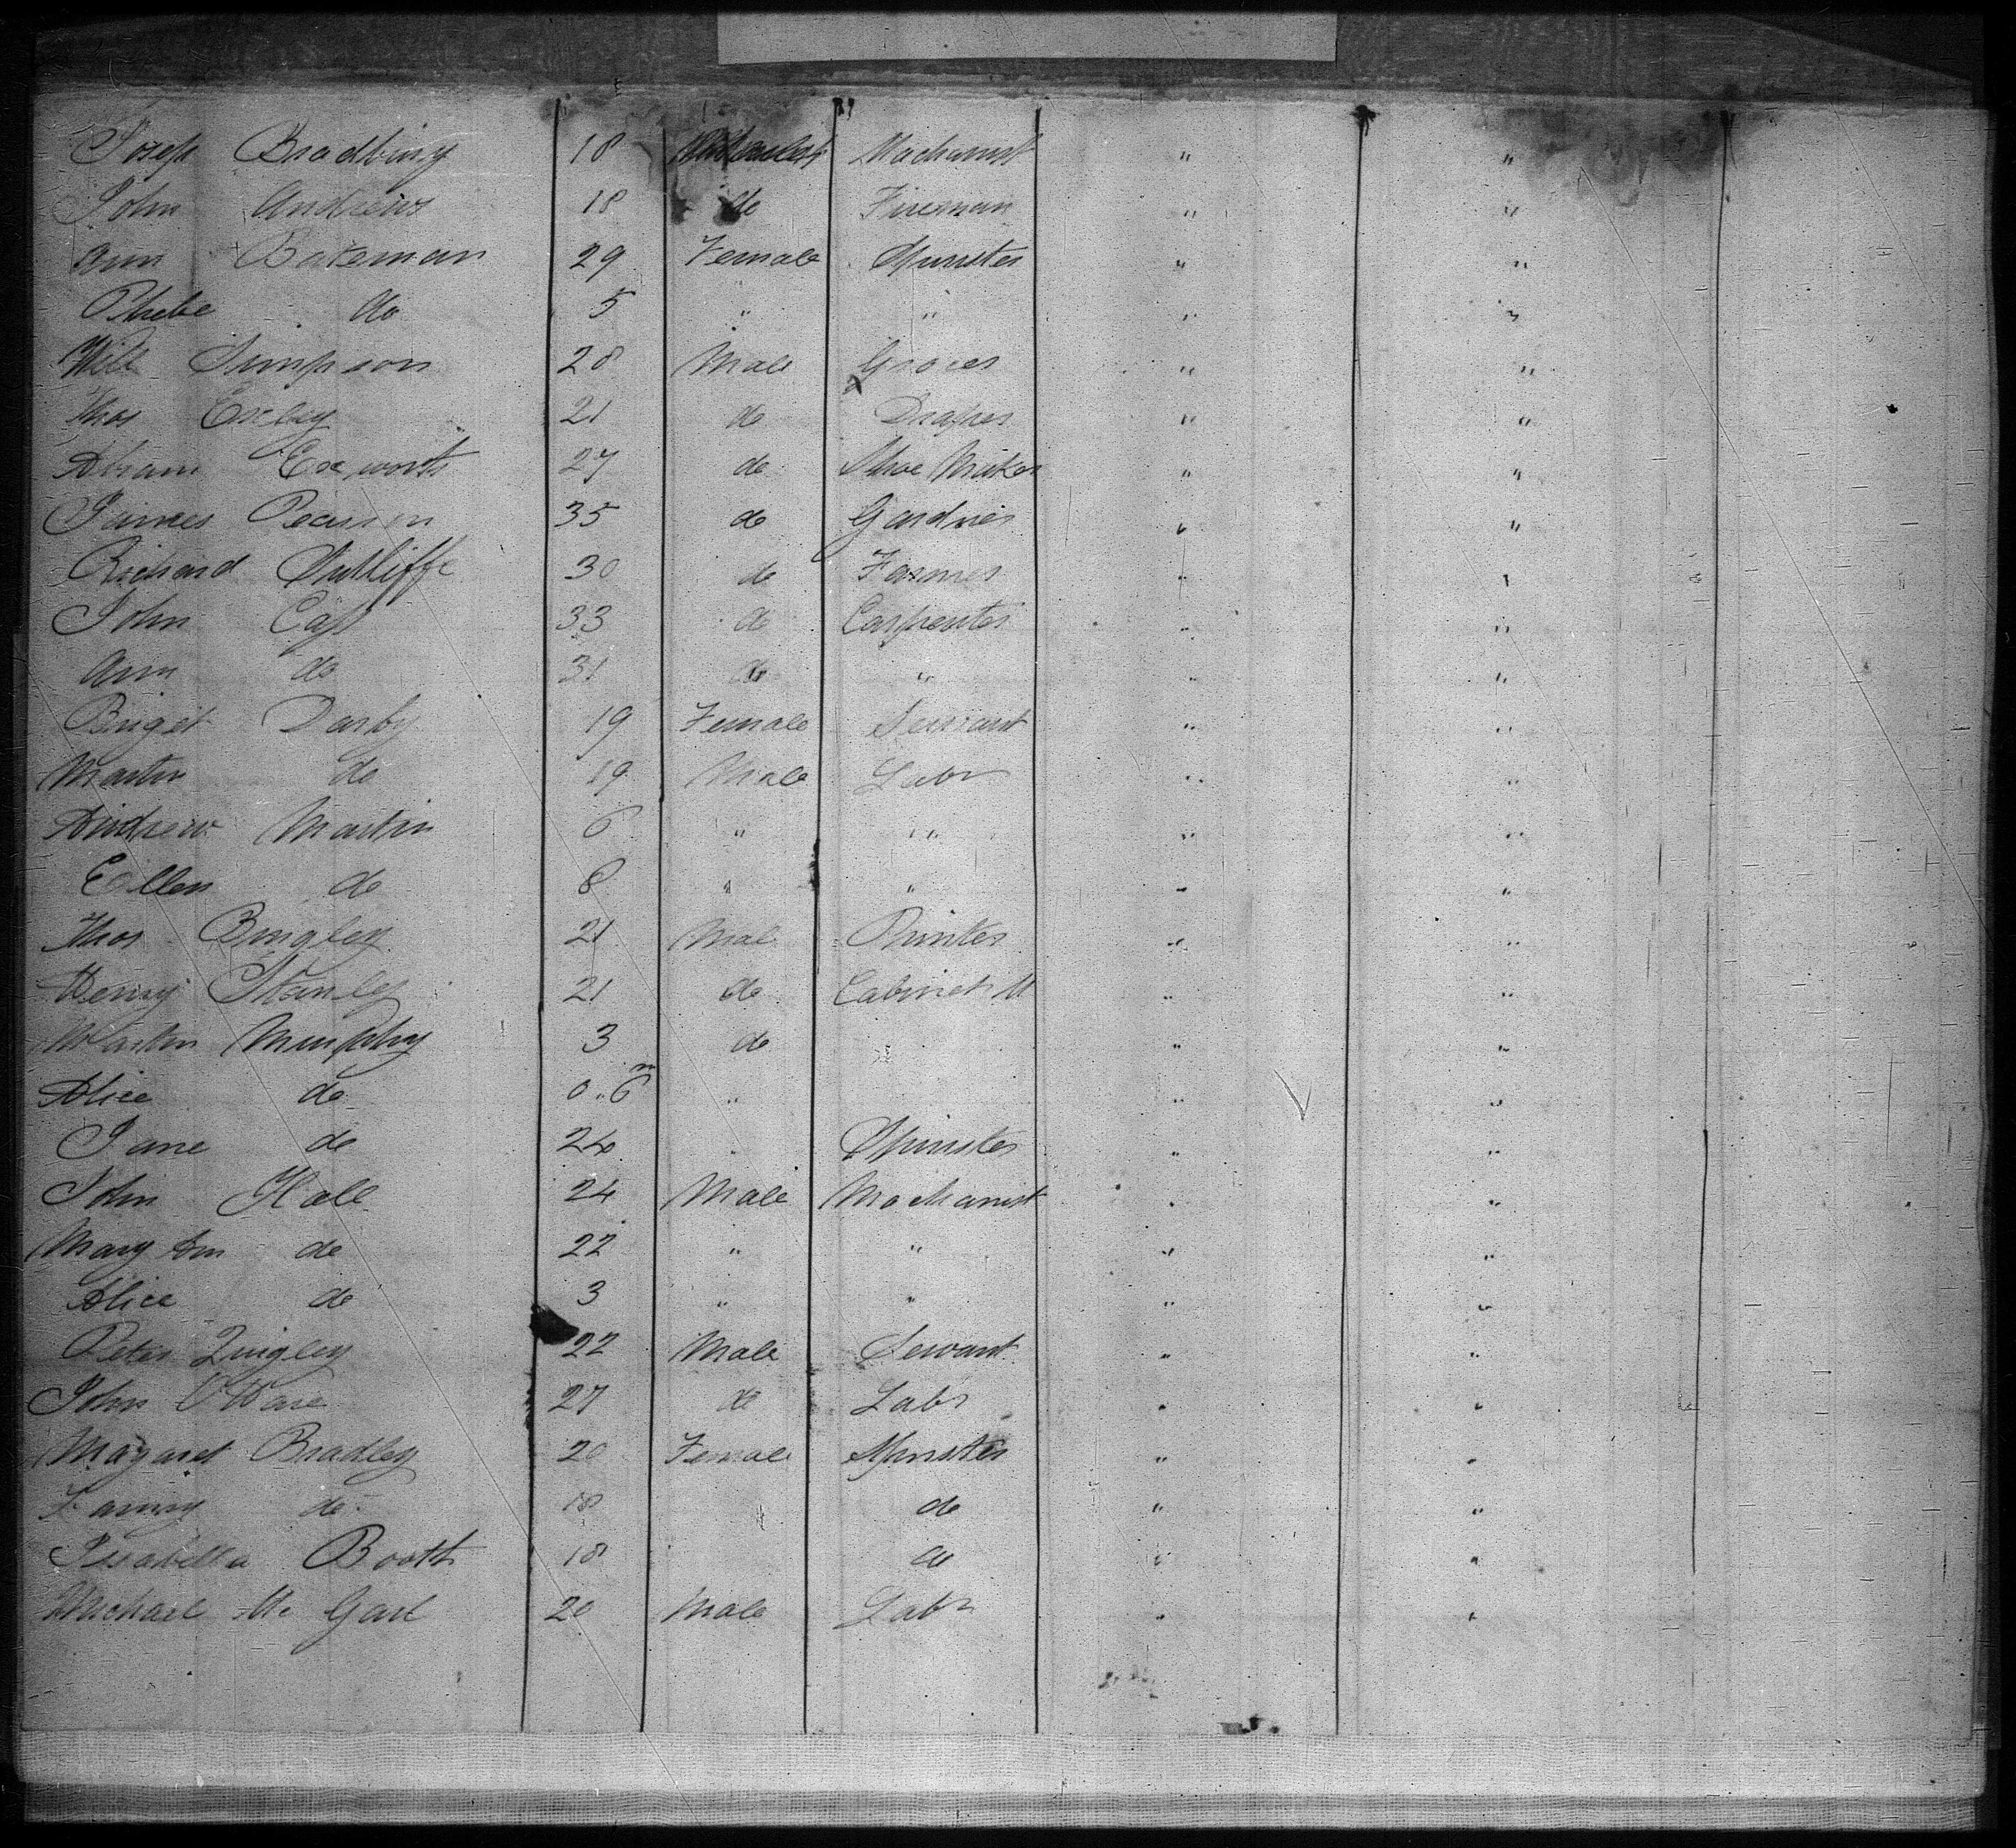 Joseph Bradbury 18 Machanist " "
John Andrews 18 do Fireman " "
Ann Bateman 29 Female Spinster " "
Phebe do 5 " " " "
Will Simpson 28 Male Grocer " "
Thos Exley 21 do Draper " "
Abram Exworth 27 do Shoe Maker " "
James Pearson 35 do Gardner " "
Richard Sutliffe 30 do Farmer " "
John Cass 33 do Carpenter " "
Ann do 31 do " " "
Briget Darby 19 Female Servant " "
Martin do 19 Male Labr " "
Andrew Martin 6 " " " "
Ellen do 8 " " " "
Thos Bingley 21 Mal Printer " "
Henry Stanley 21 do Cabinet M " "
Martin Murphy 3 do " "
Alice do 0..6m " " "
Jane do 24 " Spinster " "
John Hall 24 Male Machanist " "
Mary Ann do 22 " " " "
Alice do 3 " " " "
Peter Quigley 22 Male Servant " "
John O'Hare 27 do Labr " "
Magaret Bradley 20 Female Spinster " "
Fanny do 18 do " "
Issabella Booth 18 do " "
Michael Mc 20 Male Labr " "